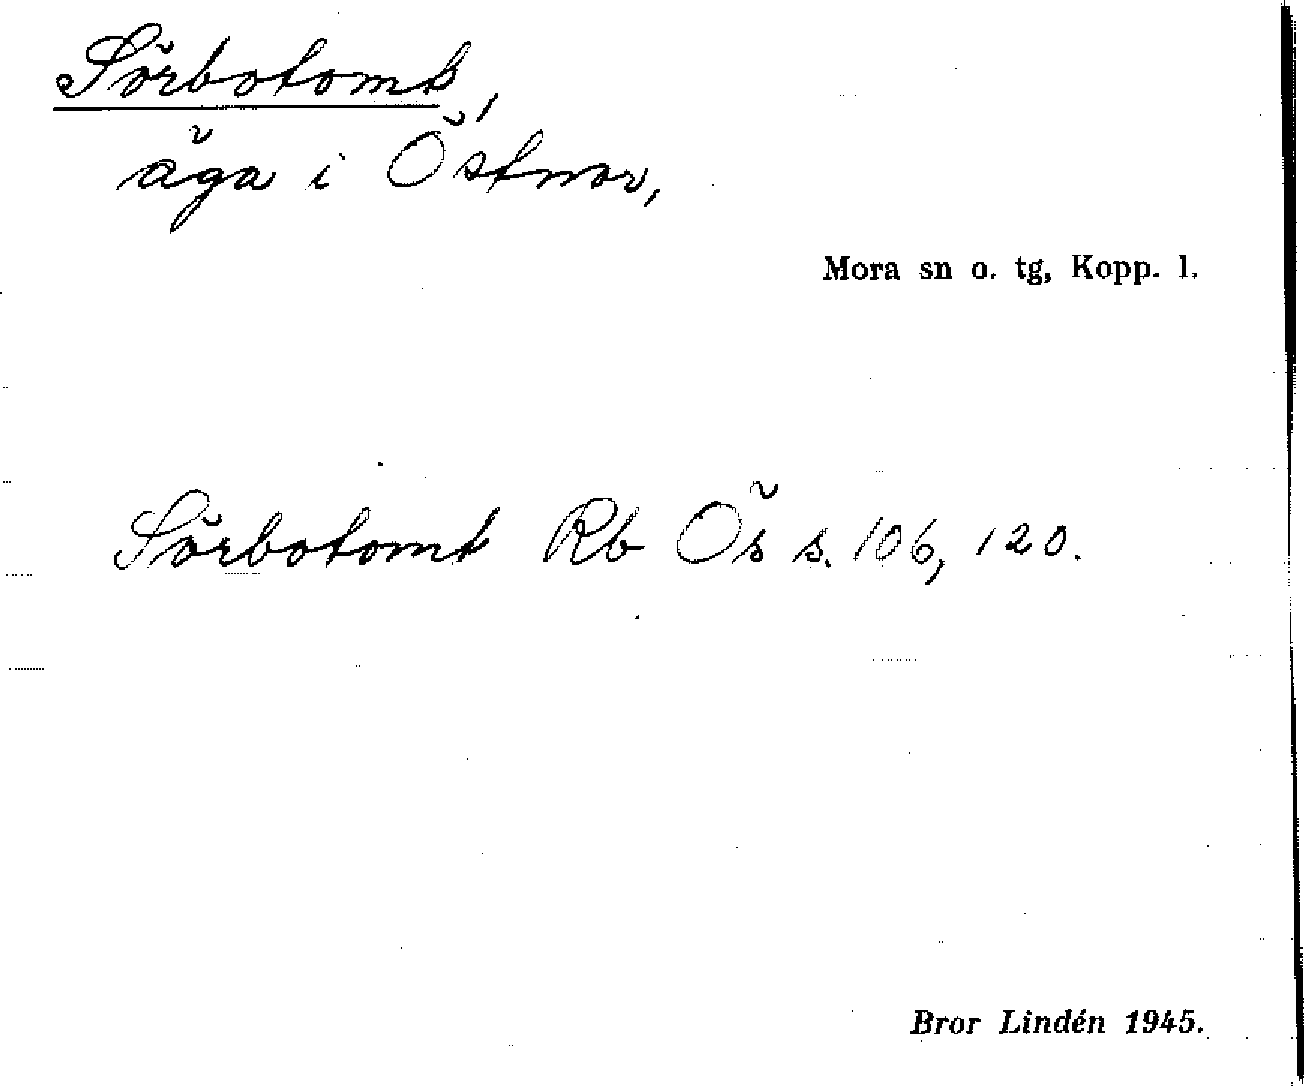 Sörbotomt,
äga i Östnor,
Mora sn o. tg, Kopp. l.
Sörbotomt Rb Ös s. 106, 120.
Bror Lindén 1945.